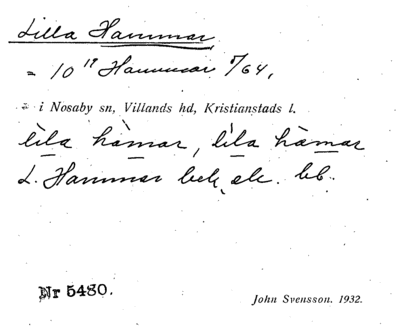 Lilla Hammar
= 10 18 Hammar 5/64,
= i Nosaby sn, Villands hd, Kristianstads l.
lìla hàmar, lìla hàmar
L. Hammar bek. ek. kb.
Nr 5480.
John Svensson. 1932.